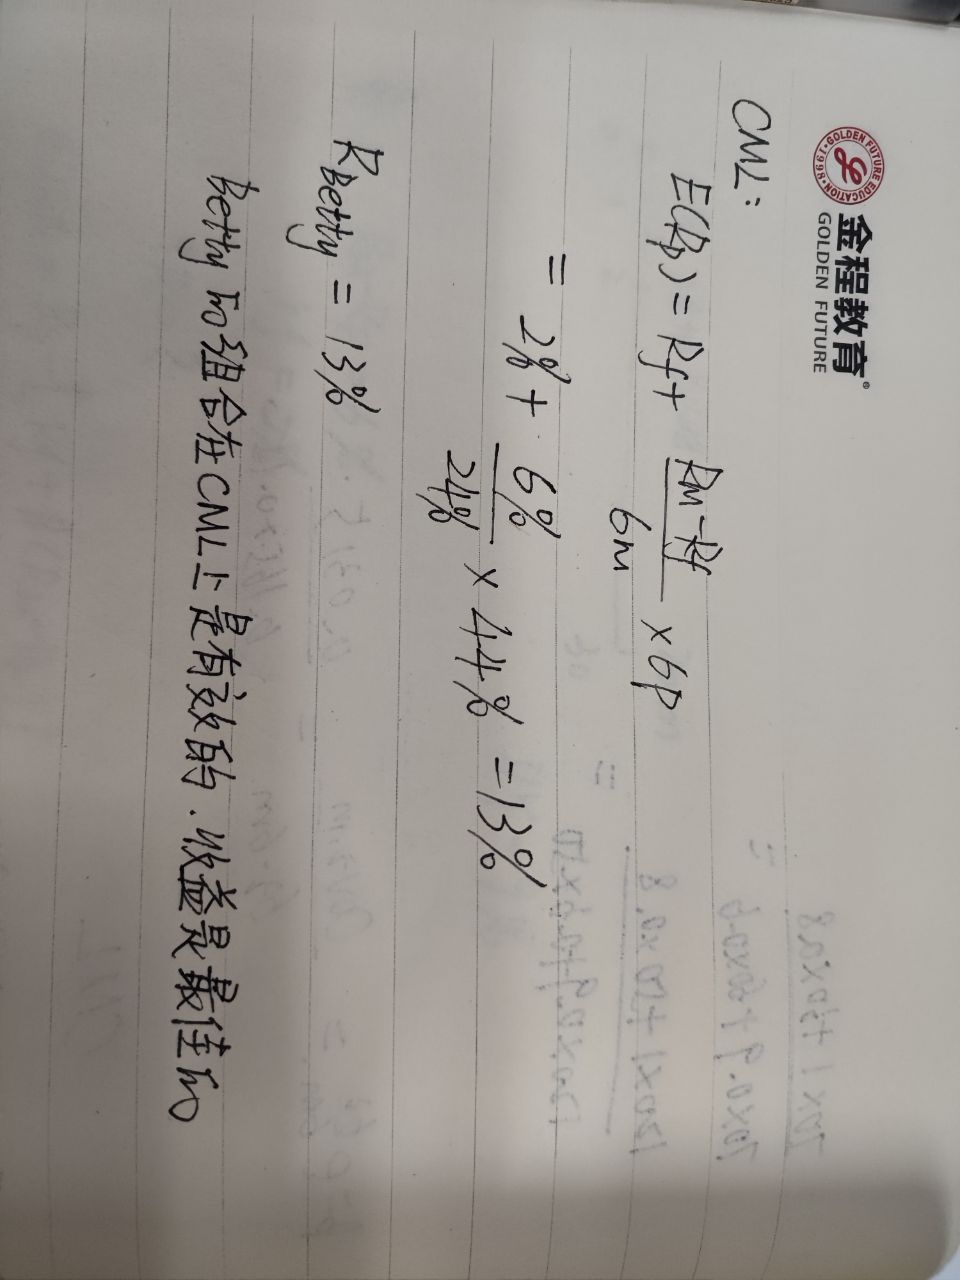 金程教育
GOLDEN FUTURE
GOLDEN FUTURE EDUCATION·1998·
CML:
E(Rp) = Rf + Rm-Rf/6m × 6p
= 2% + 6%/24% × 44% = 13%
RBetty = 13%
Betty的组合在CML上是有效的.收益是最佳的